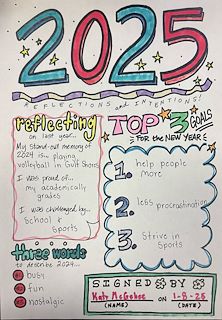 2025
REFLECTIONS and INTENTIONS!
reflecting
on last year...
My stand-out memory of
2024 is... playing
volleyball in Gulf Shores
I was proud of...
my academically
grades
I was challenged by...
School &
Sports
three words
to describe 2024...
#1 busy
#2 fun
#3 nostalgic
TOP 3 GOALS
FOR THE NEW YEAR
1. help people
more
2. less procrastination
3. Strive in
Sports
SIGNED BY
Katy McGehee ON 1-8-25
(NAME) (DATE)